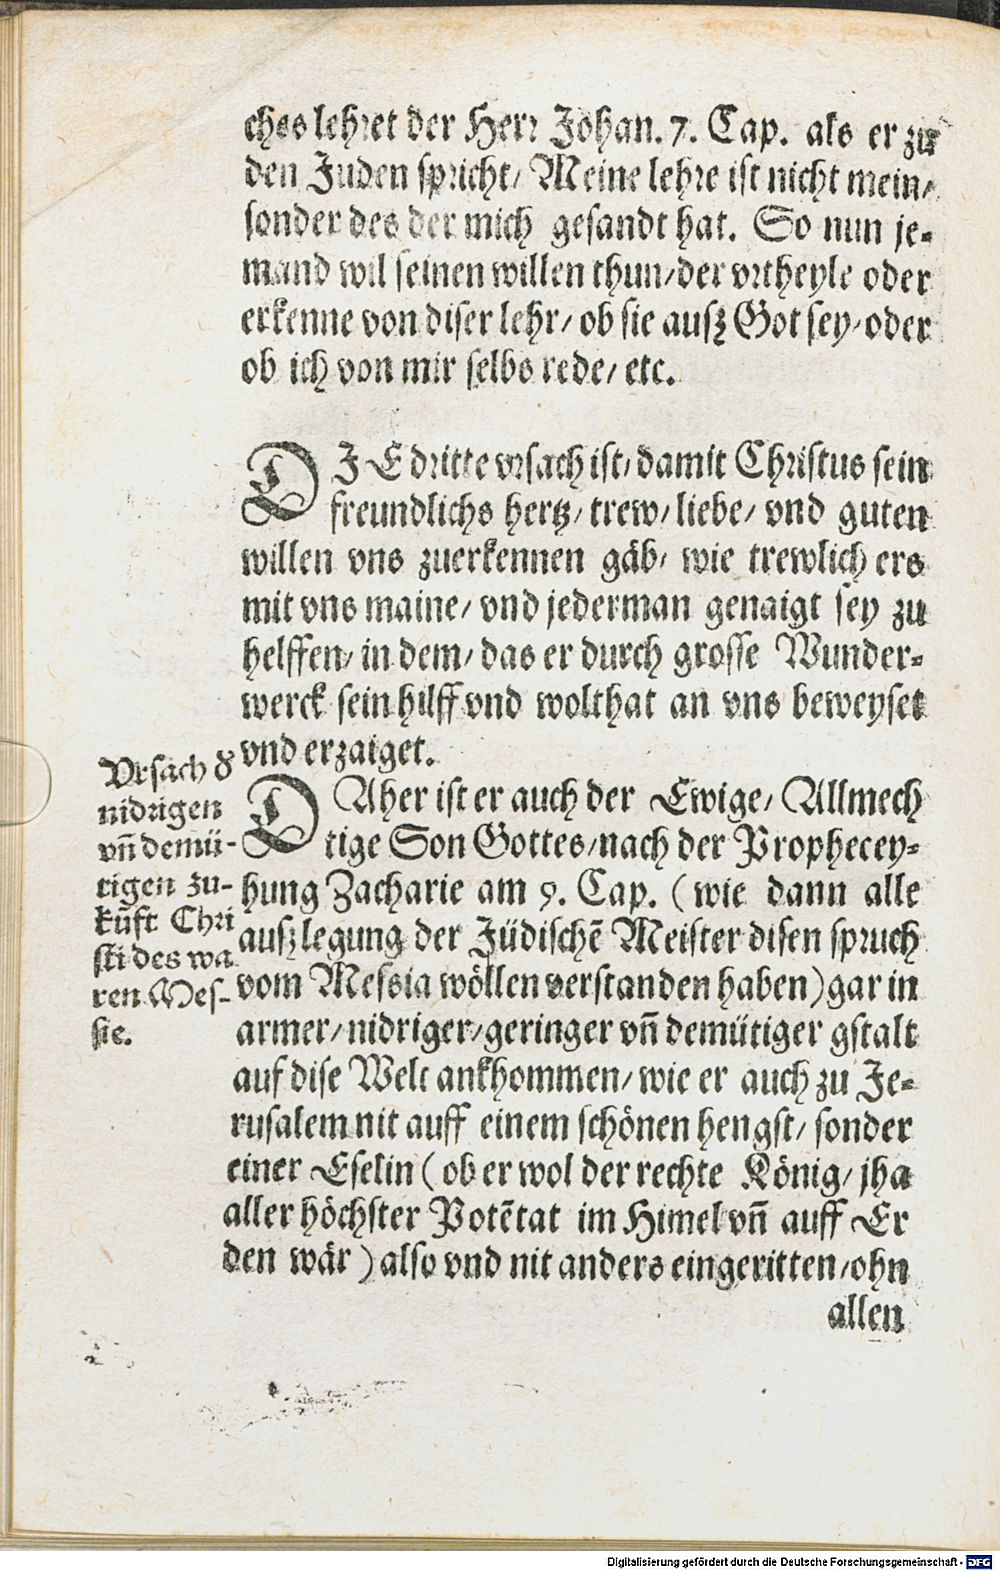 ches lehret der Herr Johan. 7. Cap. als er zu
den Juden spricht/ Meine lehre ist nicht mein/
sonder des der mich gesandt hat. So nun je-
mand wil seinen willen thun/ der vrtheyle oder
erkenne von diser lehr/ ob sie ausz Got sey/ oder
ob ich von mir selbs rede/ etc.
DIE dritte vrsach ist/ damit Christus sein
freundlichs hertz/ trew/ liebe/ vnd guten
willen vns zuerkennen gäb/ wie trewlich ers
mit vns maine/ vnd jederman genaigt sey zu
helffen/ in dem/ das er durch grosse Wunder-
werck sein hilff vnd wolthat an vns beweyset
vnd erzaiget.
Vrsach d̕
nidrigen
vn̄ demü-
tigen zu-
kūft Chri
sti des wa
ren Mes-
sie.
DAher ist er auch der Ewige/ Allmech
tige Son Gottes/ nach der Prophecey-
hung Zacharie am 9. Cap. (wie dann alle
ausz legung der Jüdischē Meister disen spruch
vom Messia wöllen verstanden haben) gar in
armer/ nidriger/ geringer vn̄ demütiger gstalt
auf dise Welt ankhommen/ wie er auch zu Je-
rusalem nit auff einem schönen hengst/ sonder
einer Eselin (ob er wol der rechte König/ jha
aller höchster Potētat im Himel vn̄ auff Er
den wär) also vnd nit anders eingeritten/ ohn
allen
Digitalisierung gefördert durch die Deutsche Forschungsgemeinschaft - DFG